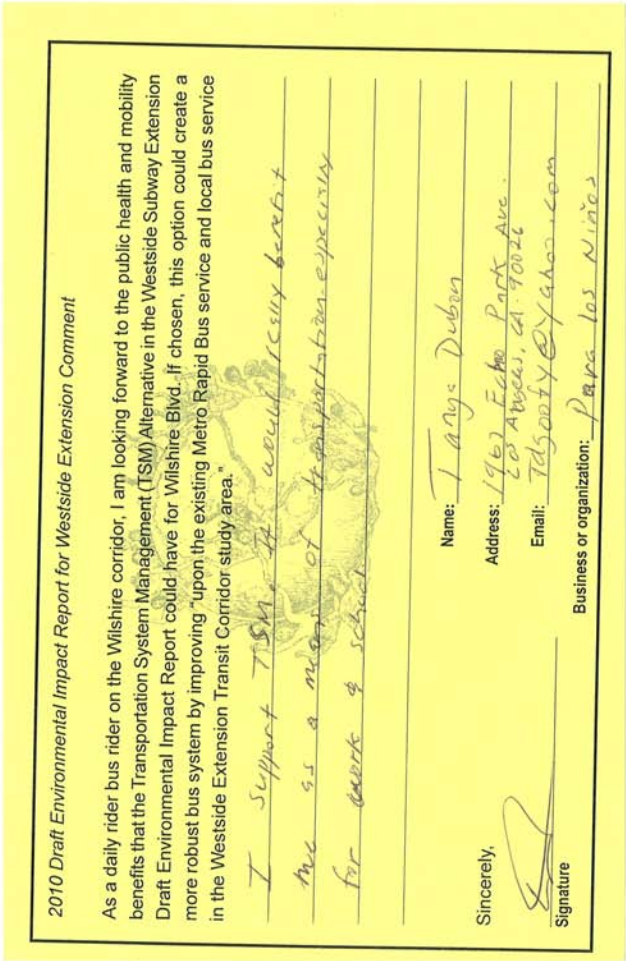 2010 Draft Environmental Impact Report for Westside Extension Comment
As a daily rider bus rider on the Wilshire corridor, I am looking forward to the public health and mobility
benefits that the Transportation System Management (TSM) Alternative in the Westside Subway Extension
Draft Environmental Impact Report could have for Wilshire Blvd. If chosen, this option could create a
more robust bus system by improving "upon the existing Metro Rapid Bus service and local bus service
in the Westside Extension Transit Corridor study area."
I support TSM. It would really benefit
me as a means of transportation especially
for work & school
Sincerely,
Signature
Name: Tanya Dubon
Address: 1967 Echo Park Ave.
Los Angeles, CA. 90026
Email: Tdgoofy@Yahoo.com
Business or organization: Para los Niños